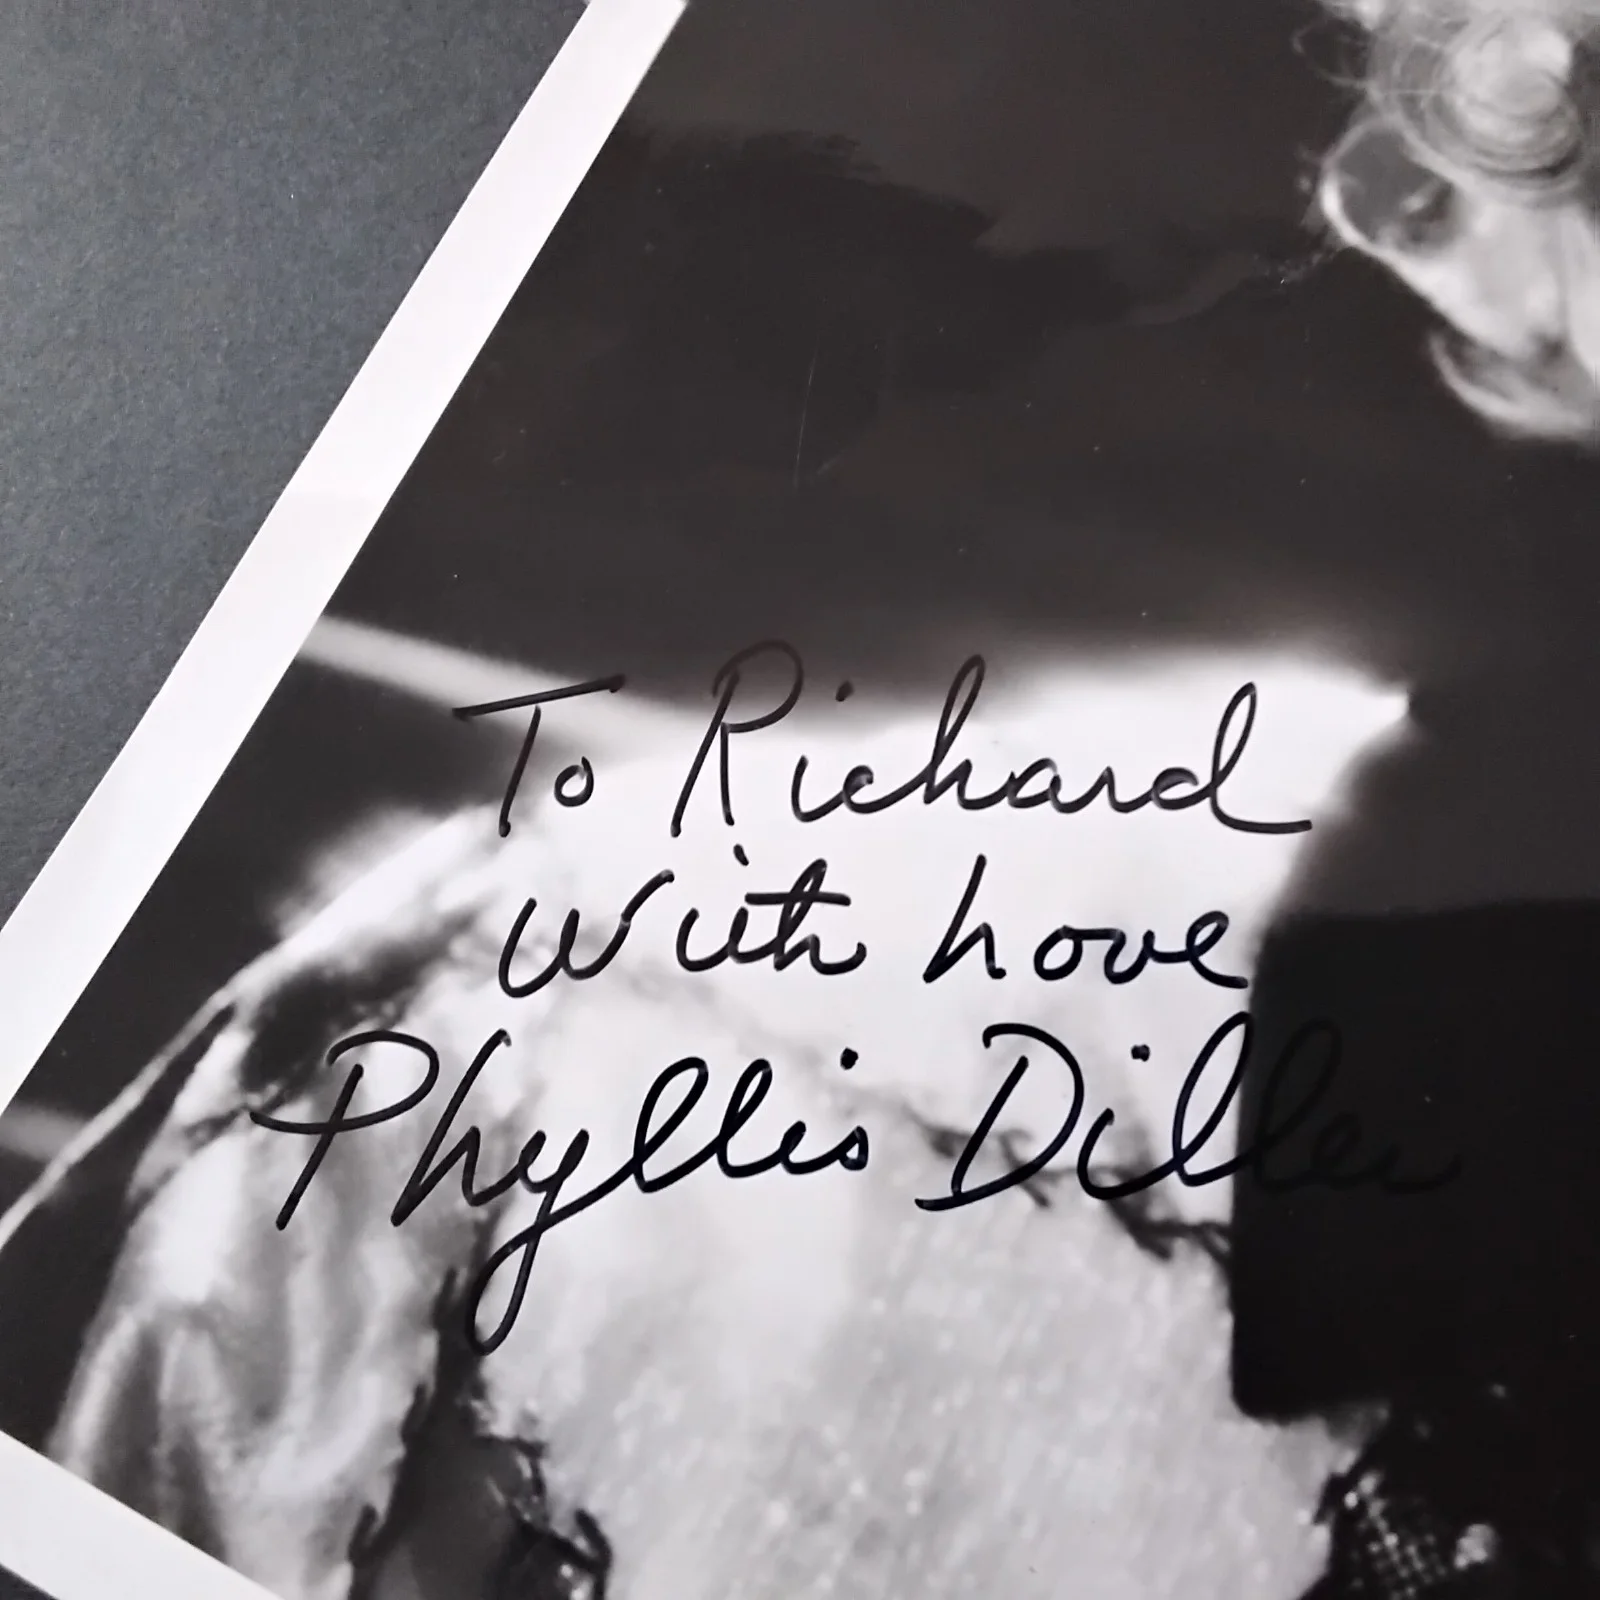 To Richard
With love
Phyllis Diller